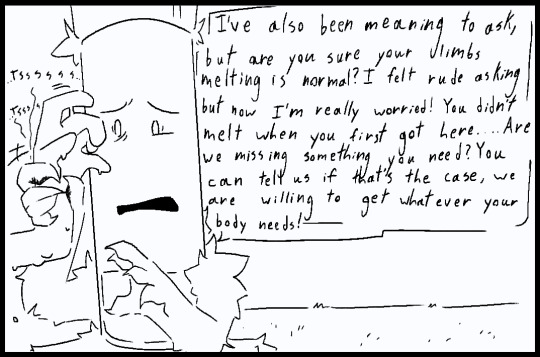 ..Tssssss..
..Tsss..
I've also been meaning to ask,
but are you sure your limbs
melting is normal? I felt rude asking
but now I'm really worried! You didn't
melt when you first got here....Are
we missing something you need? You
can tell us if that's the case, we
are willing to get whatever your
body needs!